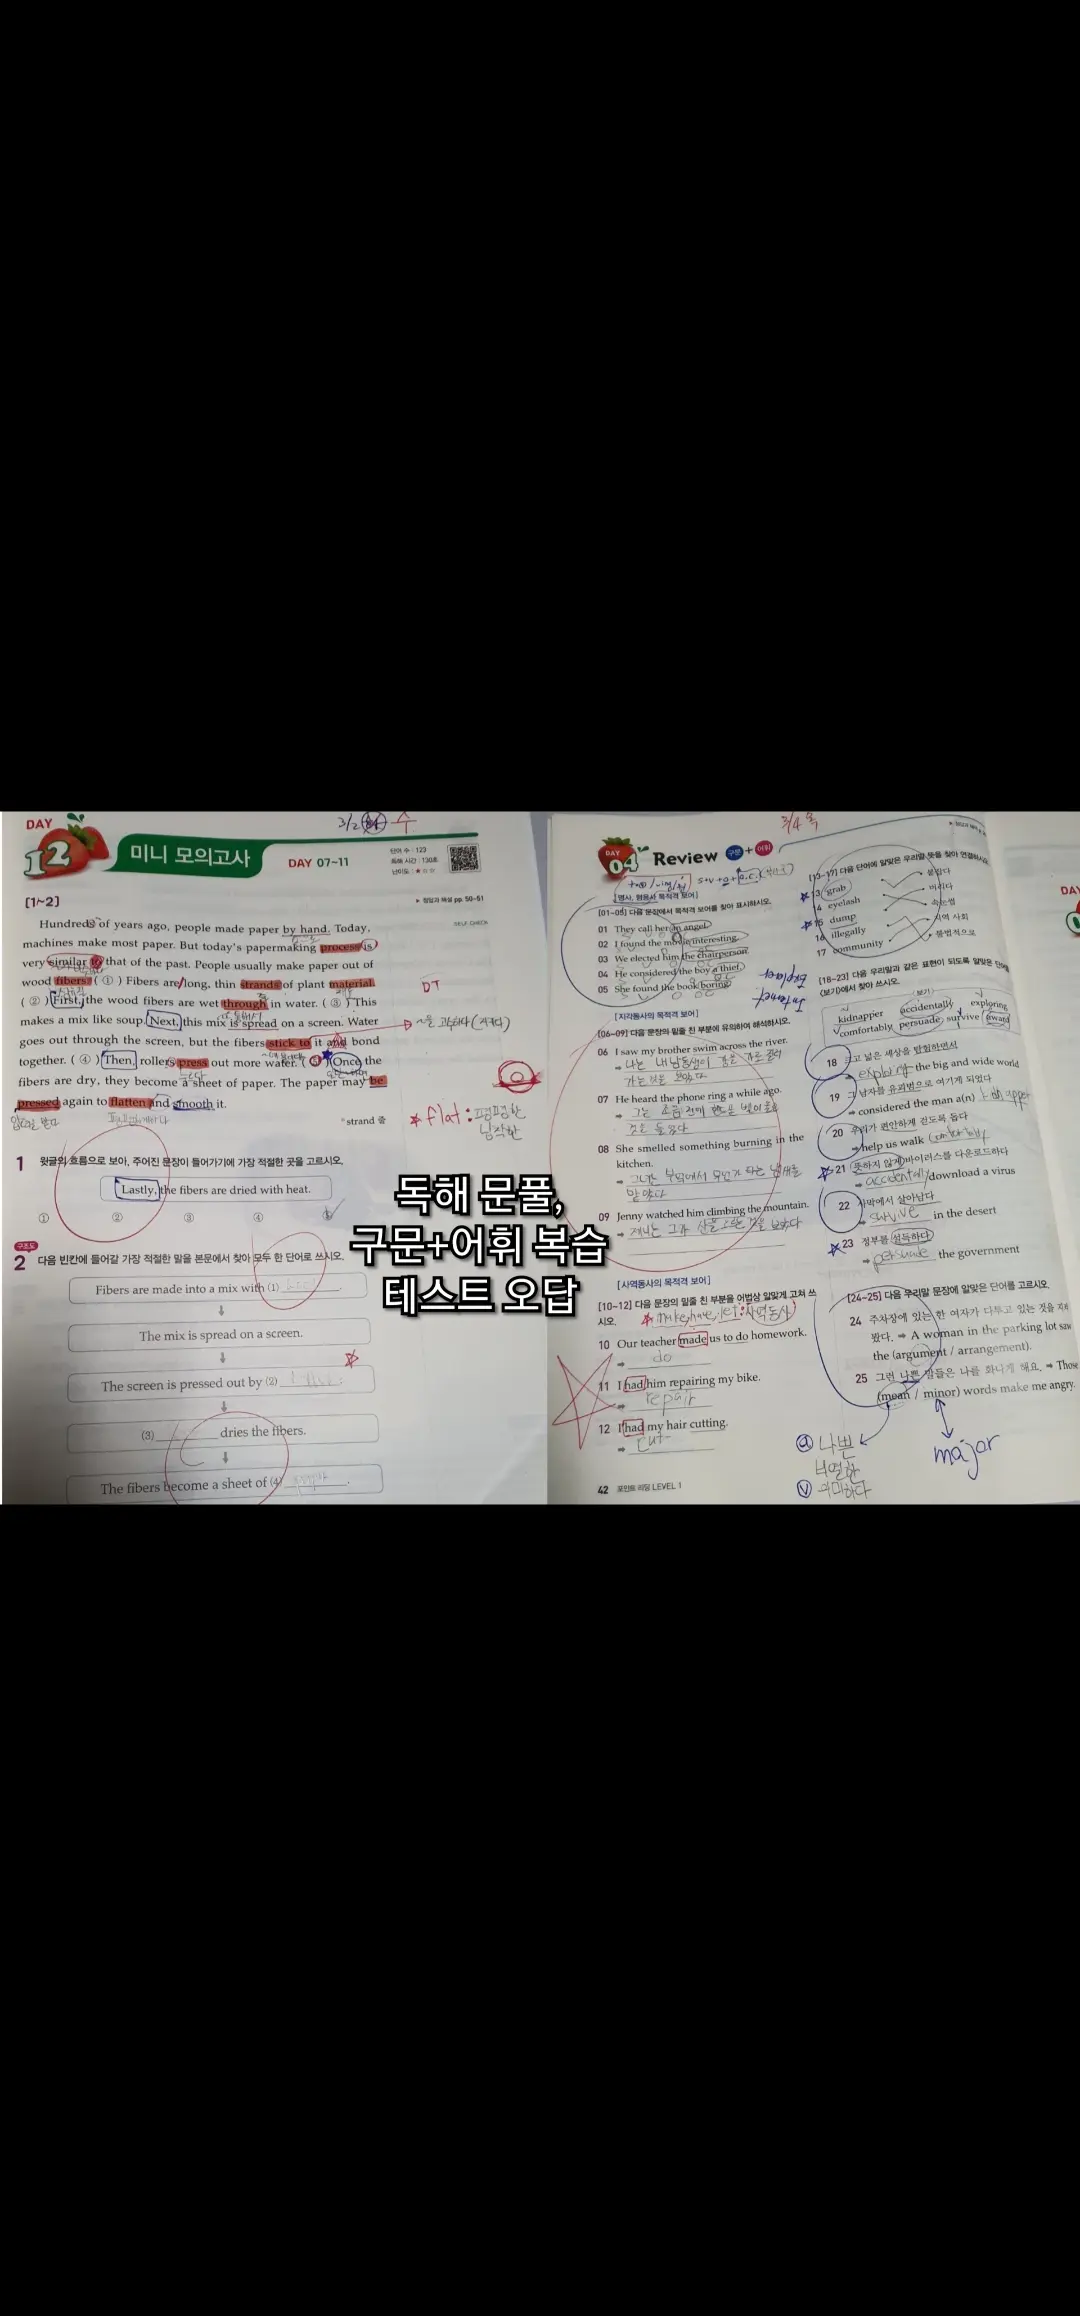 DAY
12
미니 모의고사
DAY 07~11
단어 수 : 123
독해 시간 : 130초
난이도 : ★☆☆
[1~2]
▶ 정답과 해설 pp. 50~51
SELF-CHECK
Hundreds of years ago, people made paper by hand. Today,
machines make most paper. But today's papermaking process is
very similar to that of the past. People usually make paper out of
wood fibers. ( ① ) Fibers are long, thin strands of plant material.
( ② ) First, the wood fibers are wet through in water. ( ③ ) This
makes a mix like soup. Next, this mix is spread on a screen. Water
goes out through the screen, but the fibers stick to it and bond
together. ( ④ ) Then, rollers press out more water. ( ⑤ ) Once the
fibers are dry, they become a sheet of paper. The paper may be
pressed again to flatten and smooth it.
*strand 줄
★ flat : 평평한
납작한
1 윗글의 흐름으로 보아, 주어진 문장이 들어가기에 가장 적절한 곳을 고르시오.
Lastly, the fibers are dried with heat.
① ② ③ ④
구조도
2 다음 빈칸에 들어갈 가장 적절한 말을 본문에서 찾아 모두 한 단어로 쓰시오.
Fibers are made into a mix with (1)
The mix is spread on a screen.
The screen is pressed out by (2)
(3) dries the fibers.
The fibers become a sheet of (4)
독해 문풀,
구문+어휘 복습
테스트 오답
3/4 목
DAY
04
Review 구문 + 어휘
[명사, 형용사 목적격 보어]
[01~05] 다음 문장에서 목적격 보어를 찾아 표시하시오.
01 They call her an angel.
02 I found the movie interesting.
03 We elected him the chairperson.
04 He considered the boy a thief.
05 She found the book boring.
[지각동사의 목적격 보어]
[06~09] 다음 문장의 밑줄 친 부분에 유의하여 해석하시오.
06 I saw my brother swim across the river.
07 He heard the phone ring a while ago.
08 She smelled something burning in the
kitchen.
09 Jenny watched him climbing the mountain.
[사역동사의 목적격 보어]
[10~12] 다음 문장의 밑줄 친 부분을 어법상 알맞게 고쳐 쓰
시오.
★ make, have, let : 사역동사
10 Our teacher made us to do homework.
➡ do
11 I had him repairing my bike.
➡ repair
12 I had my hair cutting.
➡ cut
42 포인트 리딩 LEVEL 1
[13~17] 다음 단어에 알맞은 우리말 뜻을 찾아 연결하시오.
13 grab 붙잡다
14 eyelash 버리다
15 dump 속눈썹
16 illegally 지역 사회
17 community 불법적으로
[18~23] 다음 우리말과 같은 표현이 되도록 알맞은 단어를
<보기>에서 찾아 쓰시오.
<보기>
kidnapper accidentally exploring
comfortably persuade survive award
18 크고 넓은 세상을 탐험하면서
➡ exploring the big and wide world
19 그 남자를 유괴범으로 여기게 되었다
➡ considered the man a(n) kidnapper
20 우리가 편안하게 걷도록 돕다
➡ help us walk comfortably
21 뜻하지 않게 바이러스를 다운로드하다
➡ accidentally download a virus
22 사막에서 살아남다
➡ survive in the desert
23 정부를 설득하다
➡ persuade the government
[24~25] 다음 우리말 문장에 알맞은 단어를 고르시오.
24 주차장에 있는 한 여자가 다투고 있는 것을 지켜
봤다. ➡ A woman in the parking lot saw
the (argument / arrangement).
25 그런 나쁜 말들은 나를 화나게 해요. ➡ Those
(mean / minor) words make me angry.
ⓐ 나쁜
major
비열한
ⓥ 의미하다